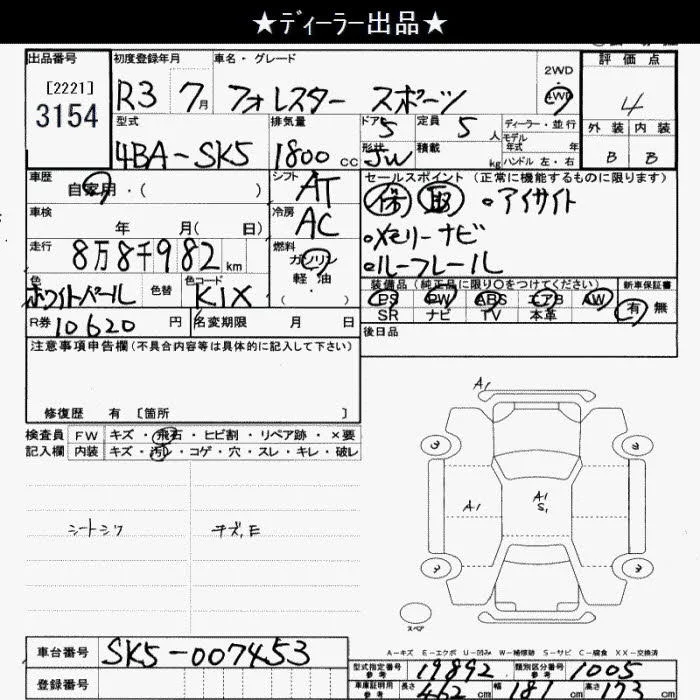 ★ディーラー出品★
出品番号
[2221]
3154
初度登録年月
R3 7月
車名・グレード
フォレスター スポーツ
2WD
・
4WD
評価点
4
外装 内装
B B
型式
4BA-SK5
排気量
1800 cc
ドア
5
定員
5 人
形状
5W
積載
kg
ディーラー・並行
モデル
年式 年
ハンドル 左・右
車歴
自家用・( )
シフト
AT
車検
年 月( 日)
冷房
AC
走行
8万8千982 km
燃料
ガソリン
軽油
( )
色
ホワイトパール
色替
色コード
K1X
R券 10620 円
名変期限 月 日
セールスポイント (正常に機能するものに限ります)
保 取 •アイサイト
•メモリーナビ
•ルーフレール
装備品 (純正品に限り○をつけてください)
PS PW ABS エアB AW
SR ナビ TV 本革
新車保証書
有 無
後日品
注意事項申告欄 (不具合内容等は具体的に記入して下さい)
修復歴 有 〔箇所 〕
検査員 FW キズ・飛石・ヒビ割・リペア跡・×要
記入欄 内装 キズ・汚レ・コゲ・穴・スレ・キレ・破レ
シートシワ
キズ,E
A1
3 3
A1
A1
S1
3 3
スペア
A-キズ E-エクボ U-凹み W-補修跡 S-サビ C-腐食 XX-交換済
車台番号 SK5-007453
登録番号
型式指定番号
参考
19892
類別区分番号
参考
1005
車庫証明用
参考
長さ 462 cm 幅 181 cm 高さ 173 cm